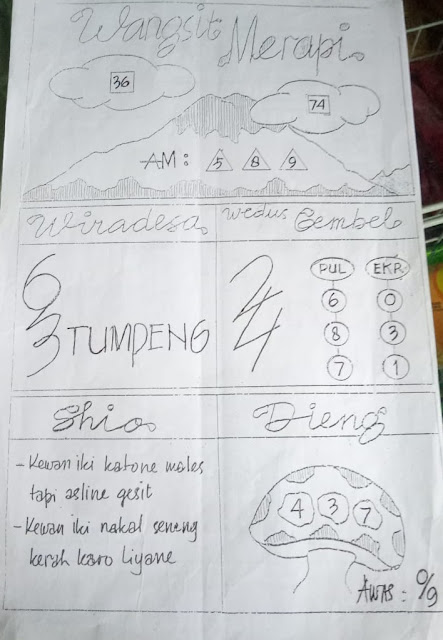 Wangsit Merapi
36
74
AM : 5 8 9
Wiradesa
6
3 TUMPENG
Wedus Gembel
2
4
PUL EKR
6 0
8 3
7 1
Shio
- Kewan iki katone males
tapi asline gesit
- Kewan iki nakal seneng
kerah karo liyane
Dieng
4 3 7
AWAS : 0/9